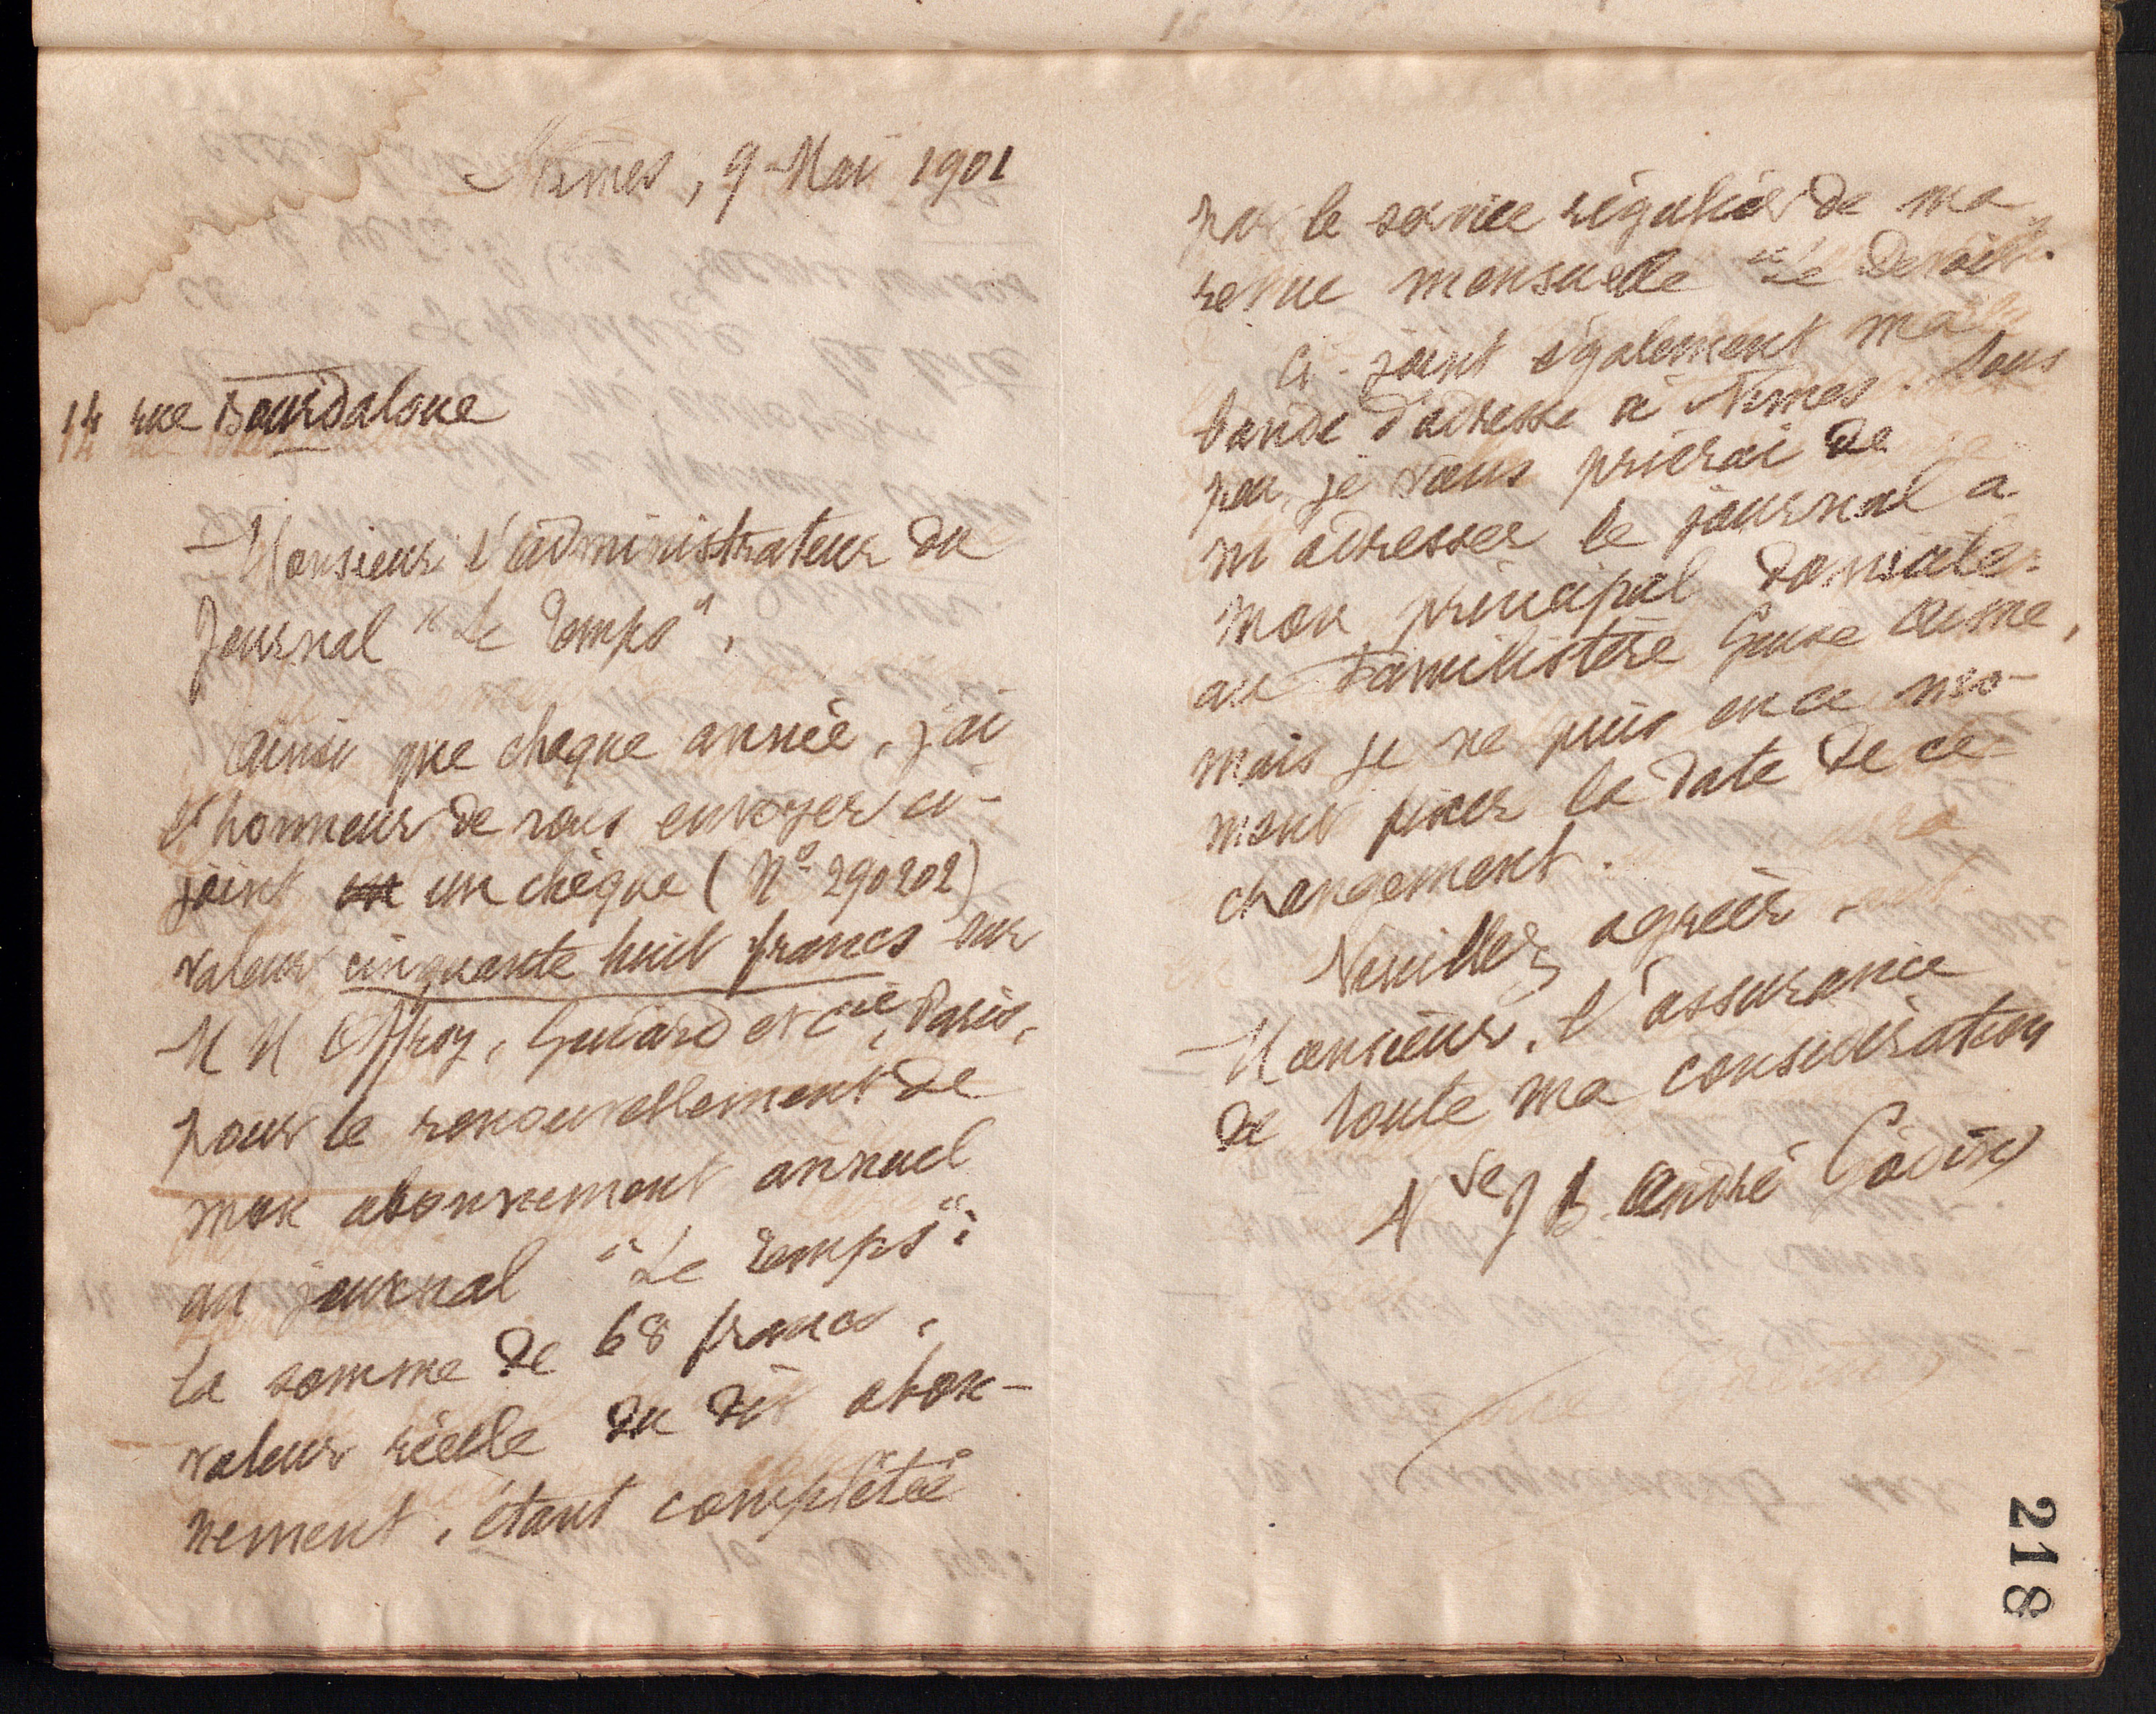 Nîmes, 9 Mai 1901
14 rue Bourdaloue
Monsieur l'administrateur du
Journal "Le Temps",
Ainsi que chaque année, j'ai
l'honneur de vous envoyer ci-
joint un un chèque (N° 290202)
valeur cinquante huit francs sur
MM Offroy, Guiard et Cie, Paris,
pour le renouvellement de
mon abonnement annuel
au journal "Le Temps";
la somme de 68 francs,
valeur réelle du dit abon-
nement, étant complétée
par le service régulier de ma
revue mensuelle "Le Devoir".
Ci-joint également ma
bande d'adresse à Nîmes. Sous
peu, je vous prierai de
m'adresser le journal à
mon principal domicile:
au Familistère Guise Aisne,
mais je ne puis en ce mo-
ment fixer la date de ce
changement.
Veuillez agréer,
Monsieur, l'assurance
de toute ma considération
Vve J B. André Godin
218